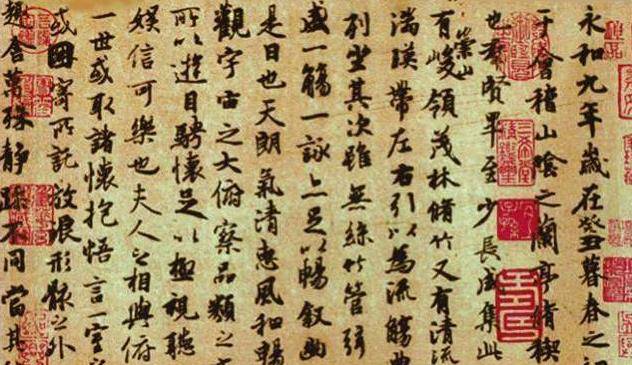 永和九年歲在癸丑暮春之初
于會稽山陰之蘭亭脩禊
也羣賢畢至少長咸集此
崇山
有峻領茂林脩竹又有清流
湍暎帶左右引以為流觴曲
列坐其次雖無絲竹管弦
盛一觴一詠亦足以暢敘幽
是日也天朗氣清惠風和暢
觀宇宙之大俯察品類之
所以遊目騁懷足以極視聽
娛信可樂也夫人之相與俯
一世或取諸懷抱悟言一室
或因寄所託放浪形骸之外
趣舍萬殊靜躁不同當其